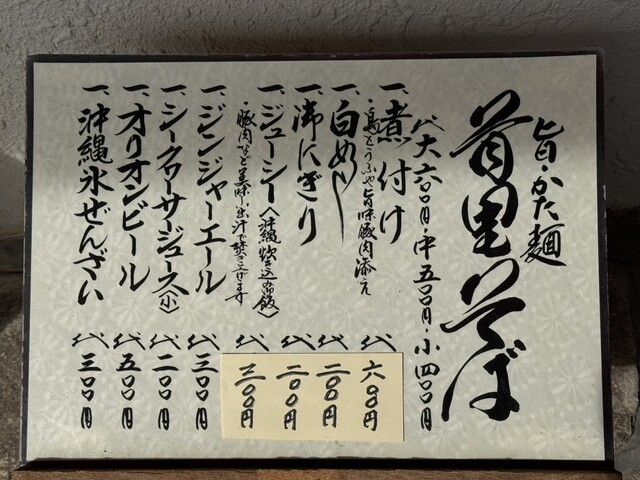 旨・かた麺
首里そば
代大六〇〇円・中五〇〇円・小四〇〇円
一、煮付け 代六〇〇円
・島どうふや旨味豚肉添え
一、白めし 代二〇〇円
一、御にぎり 代二〇〇円
一、ジューシー〈沖縄炊き込み御飯〉 代三〇〇円
・豚肉など美味し出汁で炊き上げます
一、ジンジャーエール 代三〇〇円
一、シークワーサジュース〈小〉 代二〇〇円
一、オリオンビール 代五〇〇円
一、沖縄氷ぜんざい 代三〇〇円